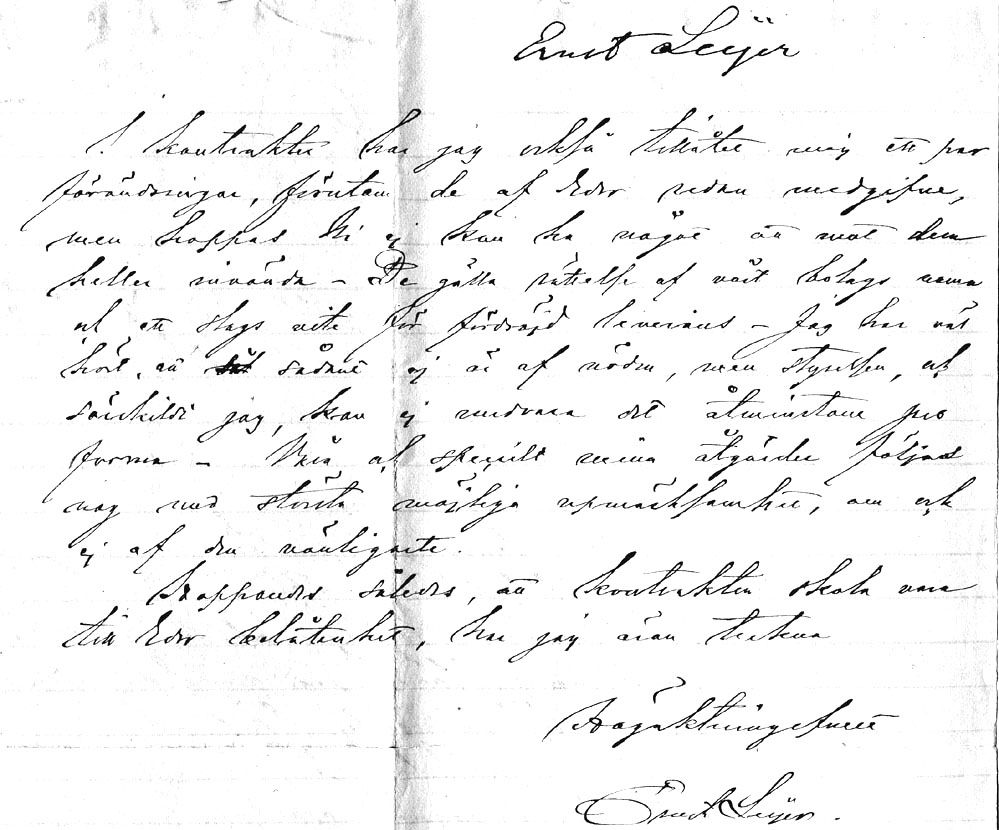 Ernst Leÿer
I kontraktet har jag också tillåtet mig ett par
förändringar, förutom de af Eder redan medgifne,
men hoppas Ni ej kan ha något att mot dem
heller invända – De gälla rättelse af vårt bolags namn
och ett slags vite för fördröjd leverans – Jag har väl
hört, att sådant ej är af nöden, men styrelsen, och
särskildt jag, kan ej undvara det åtminstone pro
forma – Våra, och speciellt mina åtgärder följas
nog med största möjliga upmärksamhet, om och
ej af den vänligaste.
Hoppandes således, att kontrakten skola vara
till Eder belåtenhet, har jag äran teckna
Högaktningsfullt
Ernst Leÿer.